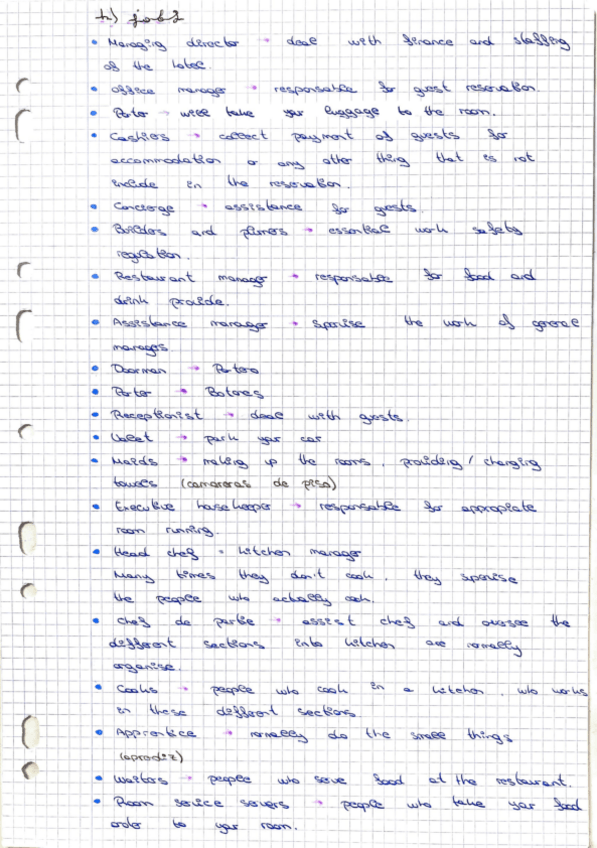 h) jobs
• Managing director → deal with finance and staffing
of the hotel.
• office manager → responsable for guest reservation.
• Porter → will take your luggage to the room.
• Cashiers → collect payment of guests for
accommodation or any other thing that is not
include in the reservation.
• Concierge → assistance for guests.
• Builders and plumers → essential work safety
regulation.
• Restaurant manager → responsable for food and
drink provide.
• Assistance manager → supervise the work of general
manages.
• Doorman → Portero
• Porter → Botones
• Receptionist → deal with guests.
• Valet → park your car
• Maids → making up the rooms, providing / changing
towels (camareras de piso)
• Executive housekeeper → responsable for appropiate
room running.
• Head chef = kitchen manager
Many times they don't cook, they spervise
the people who actually cook.
• chef de partie → assist chef and oversee the
different sections into kitchen are normally
organise.
• Cooks → people who cook in a kitchen, who works
in these different sections
• Apprentice → normally do the small things
(aprendiz)
• Waiters → people who serve food at the restaurant.
• Room service servers → people who take your food
order to your room.